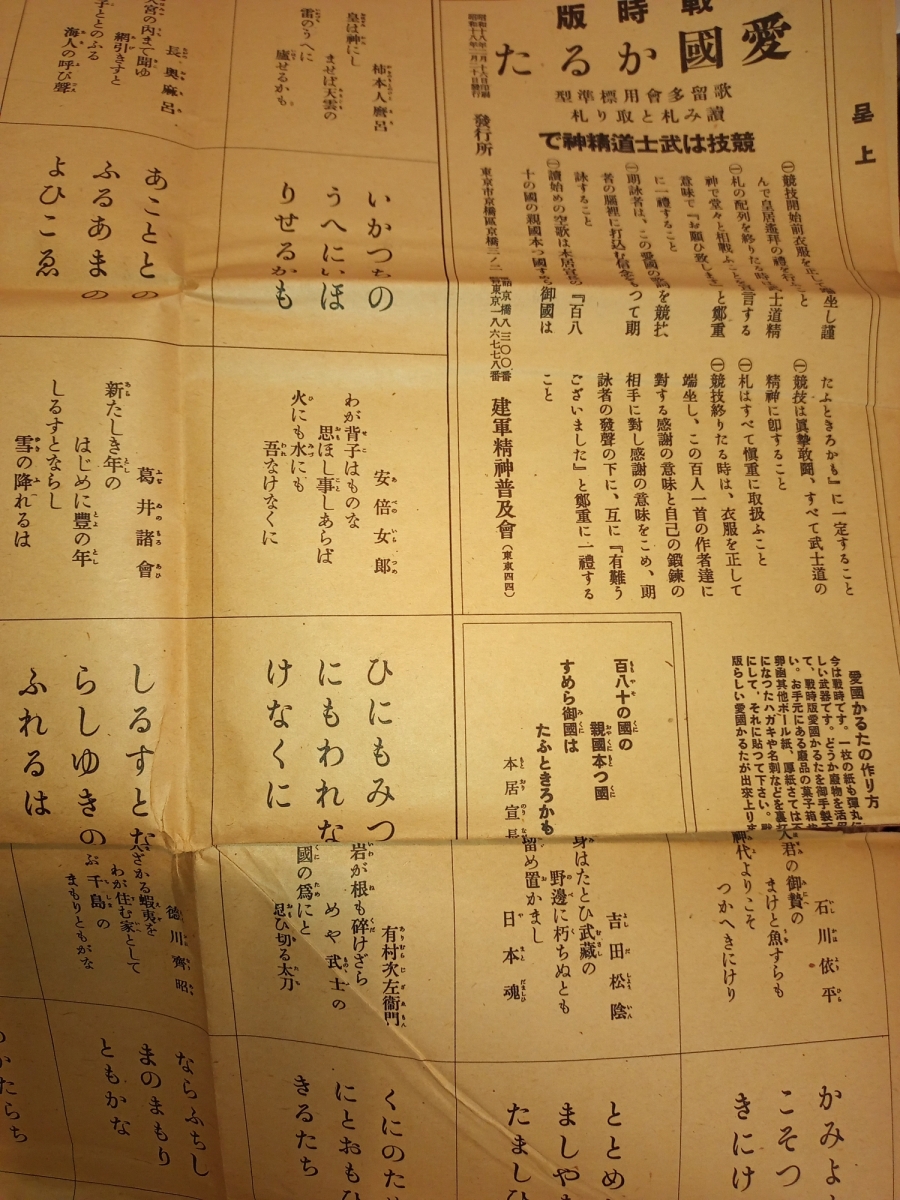 呈上
戰時版
愛國かるた
歌留多會用標準型
讀み札と取り札
競技は武士道精神で
㊀競技開始前衣服を正し端坐し謹
んで皇居遙拜の禮を行ふこと
㊀札の配列を終りたる時は武士道精
神で堂々と相戰ふことを宣言する
意味で『お願ひ致します』と鄭重
に一禮すること
㊀朗詠者は、この愛國の熱を競技
者の腦裡に打込む信念をもつて朗
詠すること
㊀讀始めの空歌は本居宣長の『百八
十の國の親國本つ國すめら御國は
たふときろかも』に一定すること
㊀競技は眞摯敢鬪、すべて武士道の
精神に卽すること
㊀札はすべて愼重に取扱ふこと
㊀競技終りたる時は、衣服を正して
端坐し、この百人一首の作者達に
對する感謝の意味と自己の鍛鍊の
相手に對し感謝の意味をこめ、朗
詠者の發聲の下に、互に『有難う
ございました』と鄭重に一禮する
こと
發行所
東京市京橋區京橋三ノ二
建軍精神普及會
(東京四四)
愛國かるたの作り方
今は戰時です。一枚の紙も彈丸に
しい武器です。どうか廢物を活用
て、戰時版愛國かるたを御手製下
い。お手元にある廢品の菓子箱や
卵函其他ボール紙、厚紙さては不
になつたハガキや名刺などを裏打
にして、それに貼つて下さい。戰
版らしい愛國かるたが出來上りま
百八十の國の
親國本つ國
すめら御國は
たふときろかも
本居宣長
柿本人麿呂
皇は神にし
ませば天雲の
雷のうへに
廬せるかも
いかつちの
うへにいほ
りせるかも
長奥麻呂
大宮の内まで聞ゆ
網引きすと
網子ととのふる
海人の呼び聲
あことの
ふるあまの
よひこゑ
安倍女郎
わが背子はものな
思ほし事しあらば
火にも水にも
吾なけなくに
ひにもみつ
にもわれな
けなくに
葛井諸會
新たしき年の
はじめに豐の年
しるすとならし
雪の降れるは
しるすとな
らしゆきの
ふれるは
石川依平
大君の御贄の
まけと魚すらも
神代よりこそ
つかへきにけり
かみよ
こそつ
きにけ
吉田松陰
身はたとひ武藏の
野邊に朽ちぬとも
留め置かまし
日本魂
ととめ
ましや
たましひ
有村次左衞門
岩が根も碎けざら
めや武士の
國の爲にと
思ひ切る太刀
くにのため
にとおもひ
きるたち
德川齊昭
ざかる蝦夷を
わが住む家として
ぶ千島の
まもりともがな
ならふちし
まのまもり
ともかな
かたらち